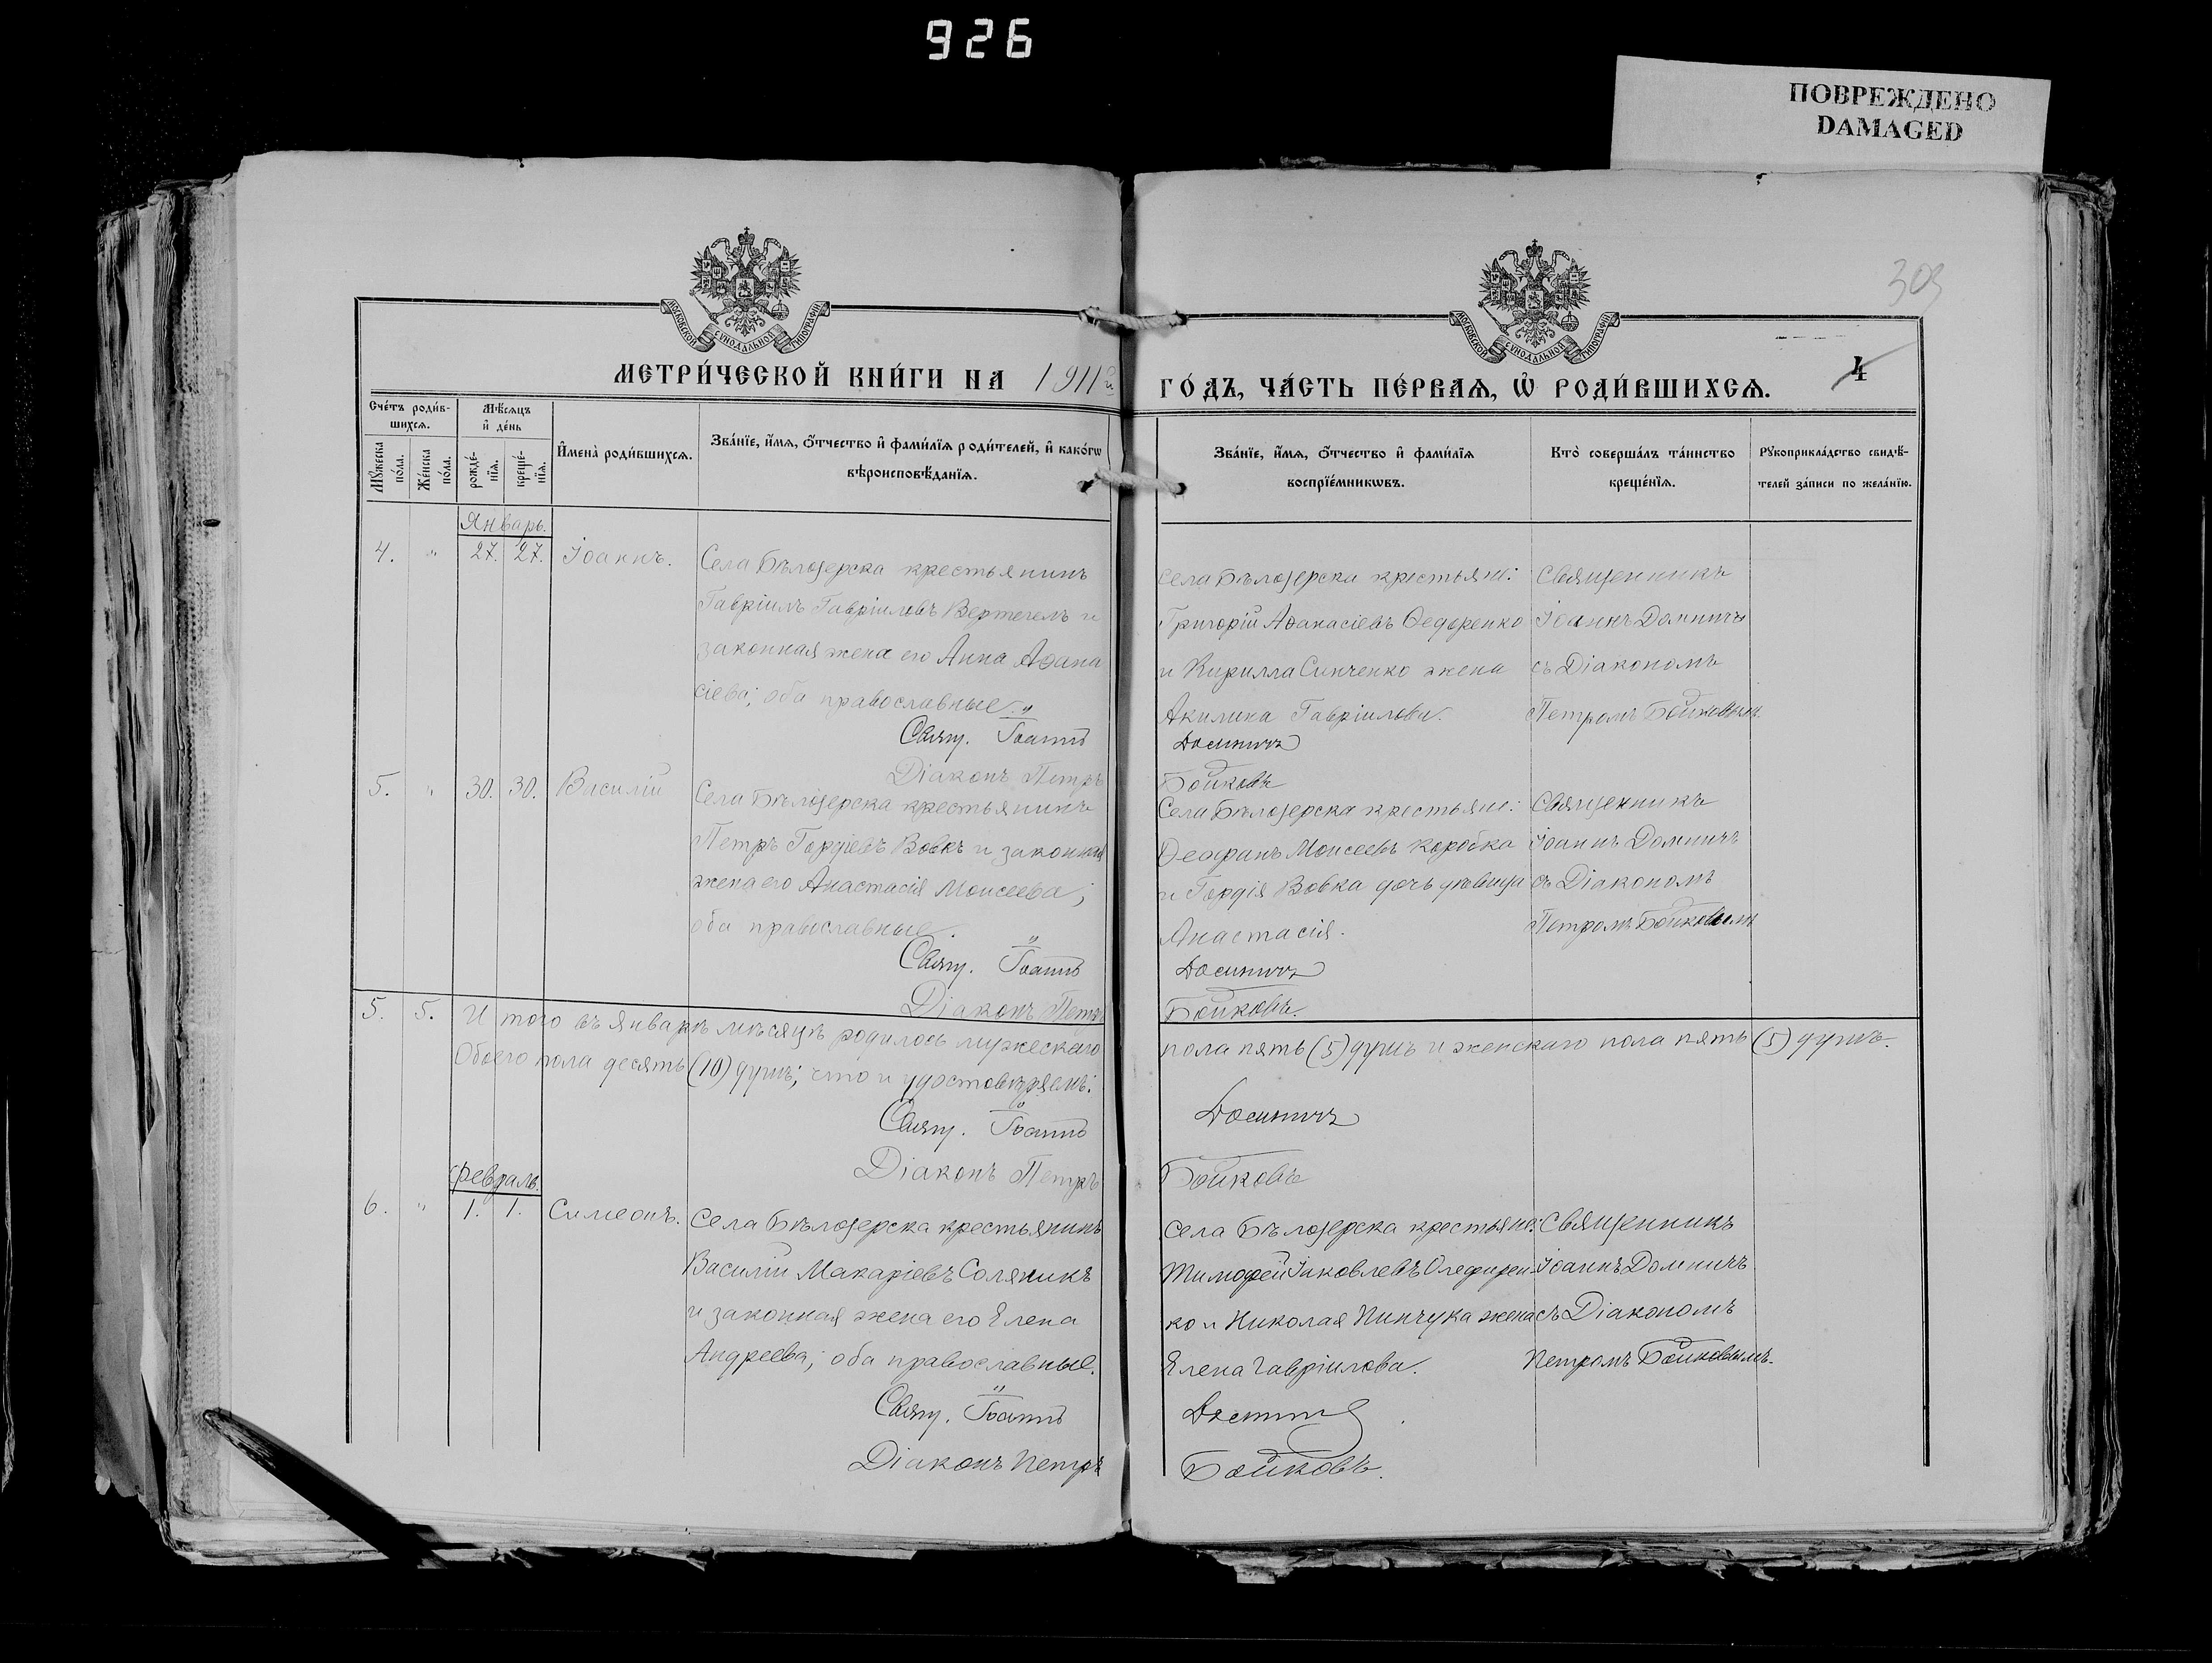 926
ПОВРЕЖДЕНО
DAMAGED
303
МОСКОВСКОЙ СѴНОДАЛЬНОЙ ТИПОГРАФІИ
МОСКОВСКОЙ СѴНОДАЛЬНОЙ ТИПОГРАФІИ
МЕТРИ́ЧЕСКОЙ КНИ́ГИ НА 1911й
ГО́ДЪ, ЧА́СТЬ ПЕ́РВАЯ, Ѡ҆ РОДИ́ВШИХСЯ.
4
Сче́тъ роди́в-
шихся.
Мѣ́сяцъ
и҆ де́нь
Мꙋ́жеска
по́ла.
Же́нска
по́ла.
рожде́-
нїя.
креще́-
нїя.
И҆мена̀ роди́вшихся.
Зва́нїе, и҆́мя, ѻ҆́тчество и҆ фами́лїя роди́телей, и҆ како́гѡ
вѣроисповѣ́данїя.
Зва́нїе, и҆́мя, ѻ҆́тчество и҆ фами́лїя
воспрїе́мникѡвъ.
Кто̀ соверша́лъ та́инство
креще́нїя.
Рꙋкоприкла́дство свидѣ́-
телей за́писи по жела́нїю.
Январь.
4. " 27. 27. Іоаннъ.
Села Бѣлозерска крестьянинъ
Гавріилъ Гавріиловъ Вертегелъ и
законная жена его Анна Аѳана
сіева; оба православные.
Свящ. Іоаннъ
Діаконъ Петръ
села Бѣлозерска крестьяне:
Григорій Аѳанасіевъ Ѳедоренко
и Кирилла Синченко жена
Акилина Гавріилова.
Домничъ
Бойковъ
Священникъ
Іоаннъ Домничъ
съ Діакономъ
Петромъ Бойковымъ.
5. " 30. 30. Василій
Села Бѣлозерска крестьянинъ
Петръ Гордіевъ Вовкъ и законная
жена его Анастасія Моисеева;
оба православные.
Свящ. Іоаннъ
Діаконъ Петръ
Села Бѣлозерска крестьяне:
Ѳеофанъ Моисеевъ Коробка
и Гордія Вовка дочь дѣвица
Анастасія.
Домничъ
Бойковъ.
Священникъ
Іоаннъ Домничъ
съ Діакономъ
Петромъ Бойковымъ
5. 5. Итого въ Январѣ мѣсяцѣ родилось мужескаго
пола пять (5) душъ и женскаго пола пять (5) душъ.
Обоего пола десять (10) душъ; что и удостовѣряемъ:
Свящ. Іоаннъ
Домничъ
Діаконъ Петръ
Бойковъ
Февраль.
6. " 1. 1. Симеонъ.
Села Бѣлозерска крестьянинъ
Василій Макаріевъ Соляникъ
и законная жена его Елена
Андреева; оба православные.
Свящ. Іоаннъ
Діаконъ Петръ
Села Бѣлозерска крестьяне:
Тимофей Іаковлевъ Олефирен-
ко и Николая Пинчука жена
Елена Гавріилова.
Домничъ
Бойковъ.
Священникъ
Іоаннъ Домничъ
съ Діакономъ
Петромъ Бойковымъ.